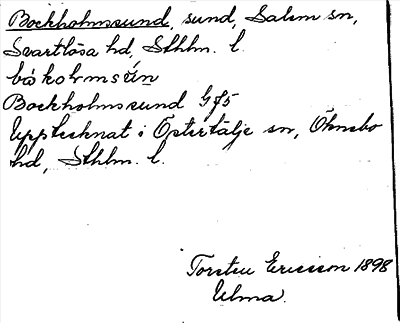 Bockholmssund, sund, Salem sn,
Svartlösa hd, Sthlm. l.
Bockholmssund G♂5
Upptecknat i Östertälje sn, Öknebo
hd, Sthlm. l.
Torsten Ericsson 1898
Ulma.